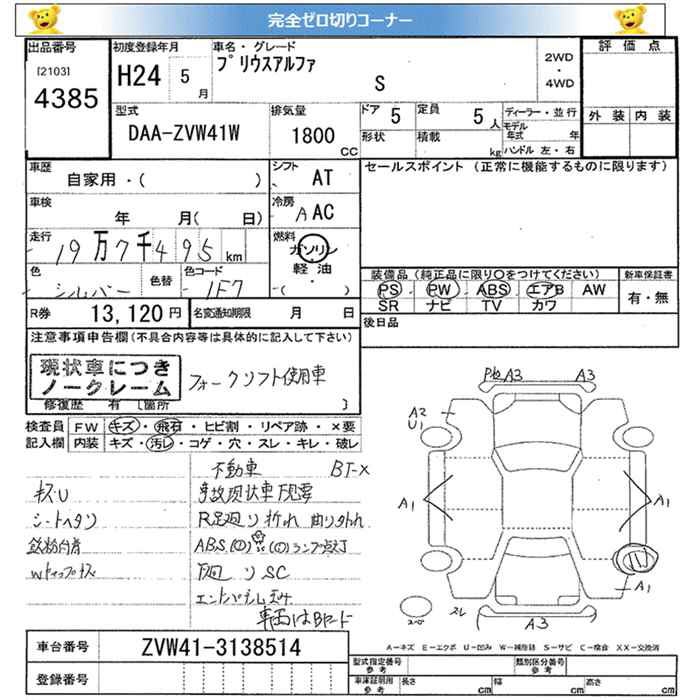 完全ゼロ切りコーナー
出品番号 初度登録年月 車名・グレード 評価点
[2103] H24 5月 プリウスアルファ 2WD・4WD
4385 S
外装 内装
型式 排気量 ドア 5 定員 5人 ディーラー・並行
DAA-ZVW41W 1800cc 形状 積載 kg モデル年式 年
ハンドル 左・右
車歴 シフト セールスポイント (正常に機能するものに限ります)
自家用・( ) AT
車検 冷房
年 月( 日) A AC
走行 燃料
19万7千495km ガソリン
軽油
色 色替 色コード ・( )
シルバー 1F7
装備品(純正品に限り○をつけてください) 新車保証書
PS・PW・ABS・エアB AW 有・無
SR ナビ TV カワ
R券 13,120円 名変通知期限 月 日
後日品
注意事項申告欄(不具合内容等は具体的に記入して下さい)
現状車につき
ノークレーム
フォークリフト使用車
修復歴 有 [箇所 ]
検査員 FW キズ・飛石・ヒビ割・リペア跡・×要
記入欄 内装 キズ・汚レ・コゲ・穴・スレ・キレ・破レ
不動車 BT-X
キズU 事故現状車下見要
シートヘタリ R足廻り折れ 曲り外れ
鉄粉内省
下廻りSC
A3 A3
A2
U1
A1 A1
A1
スレ
A3
車台番号 ZVW41-3138514
登録番号
A-キズ E-エクボ U-凹み W-補修跡 S-サビ C-腐食 XX-交換済
型式指定番号 参考 類別区分番号 参考
車庫証明用 参考 長さ cm 幅 cm 高さ cm